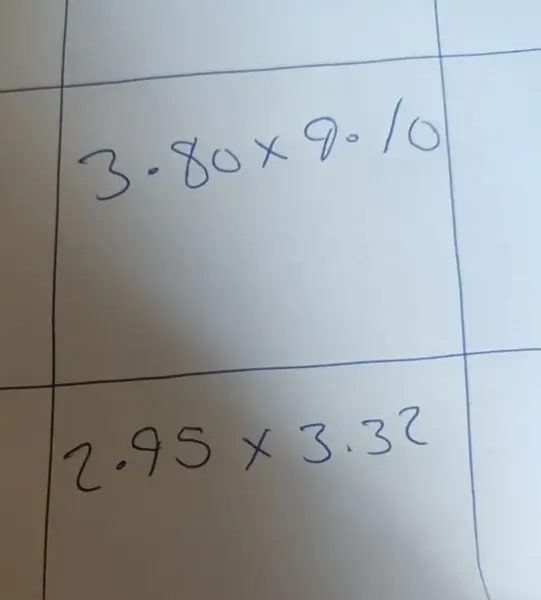 3.80x9.10
2.95 x 3.32